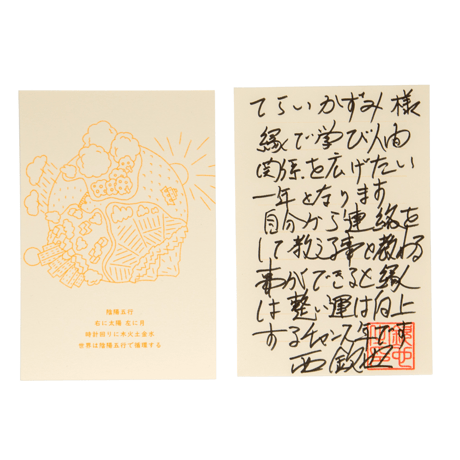 陰陽五行
右に太陽 左に月
時計回りに木火土金水
世界は陰陽五行で循環する
てらいかずみ 様
縁で学び人間
関係を広げたい
一年となります
自分から連絡を
して教える事と教わる
事ができると縁
は整い運は向上
するチャンス年です
西